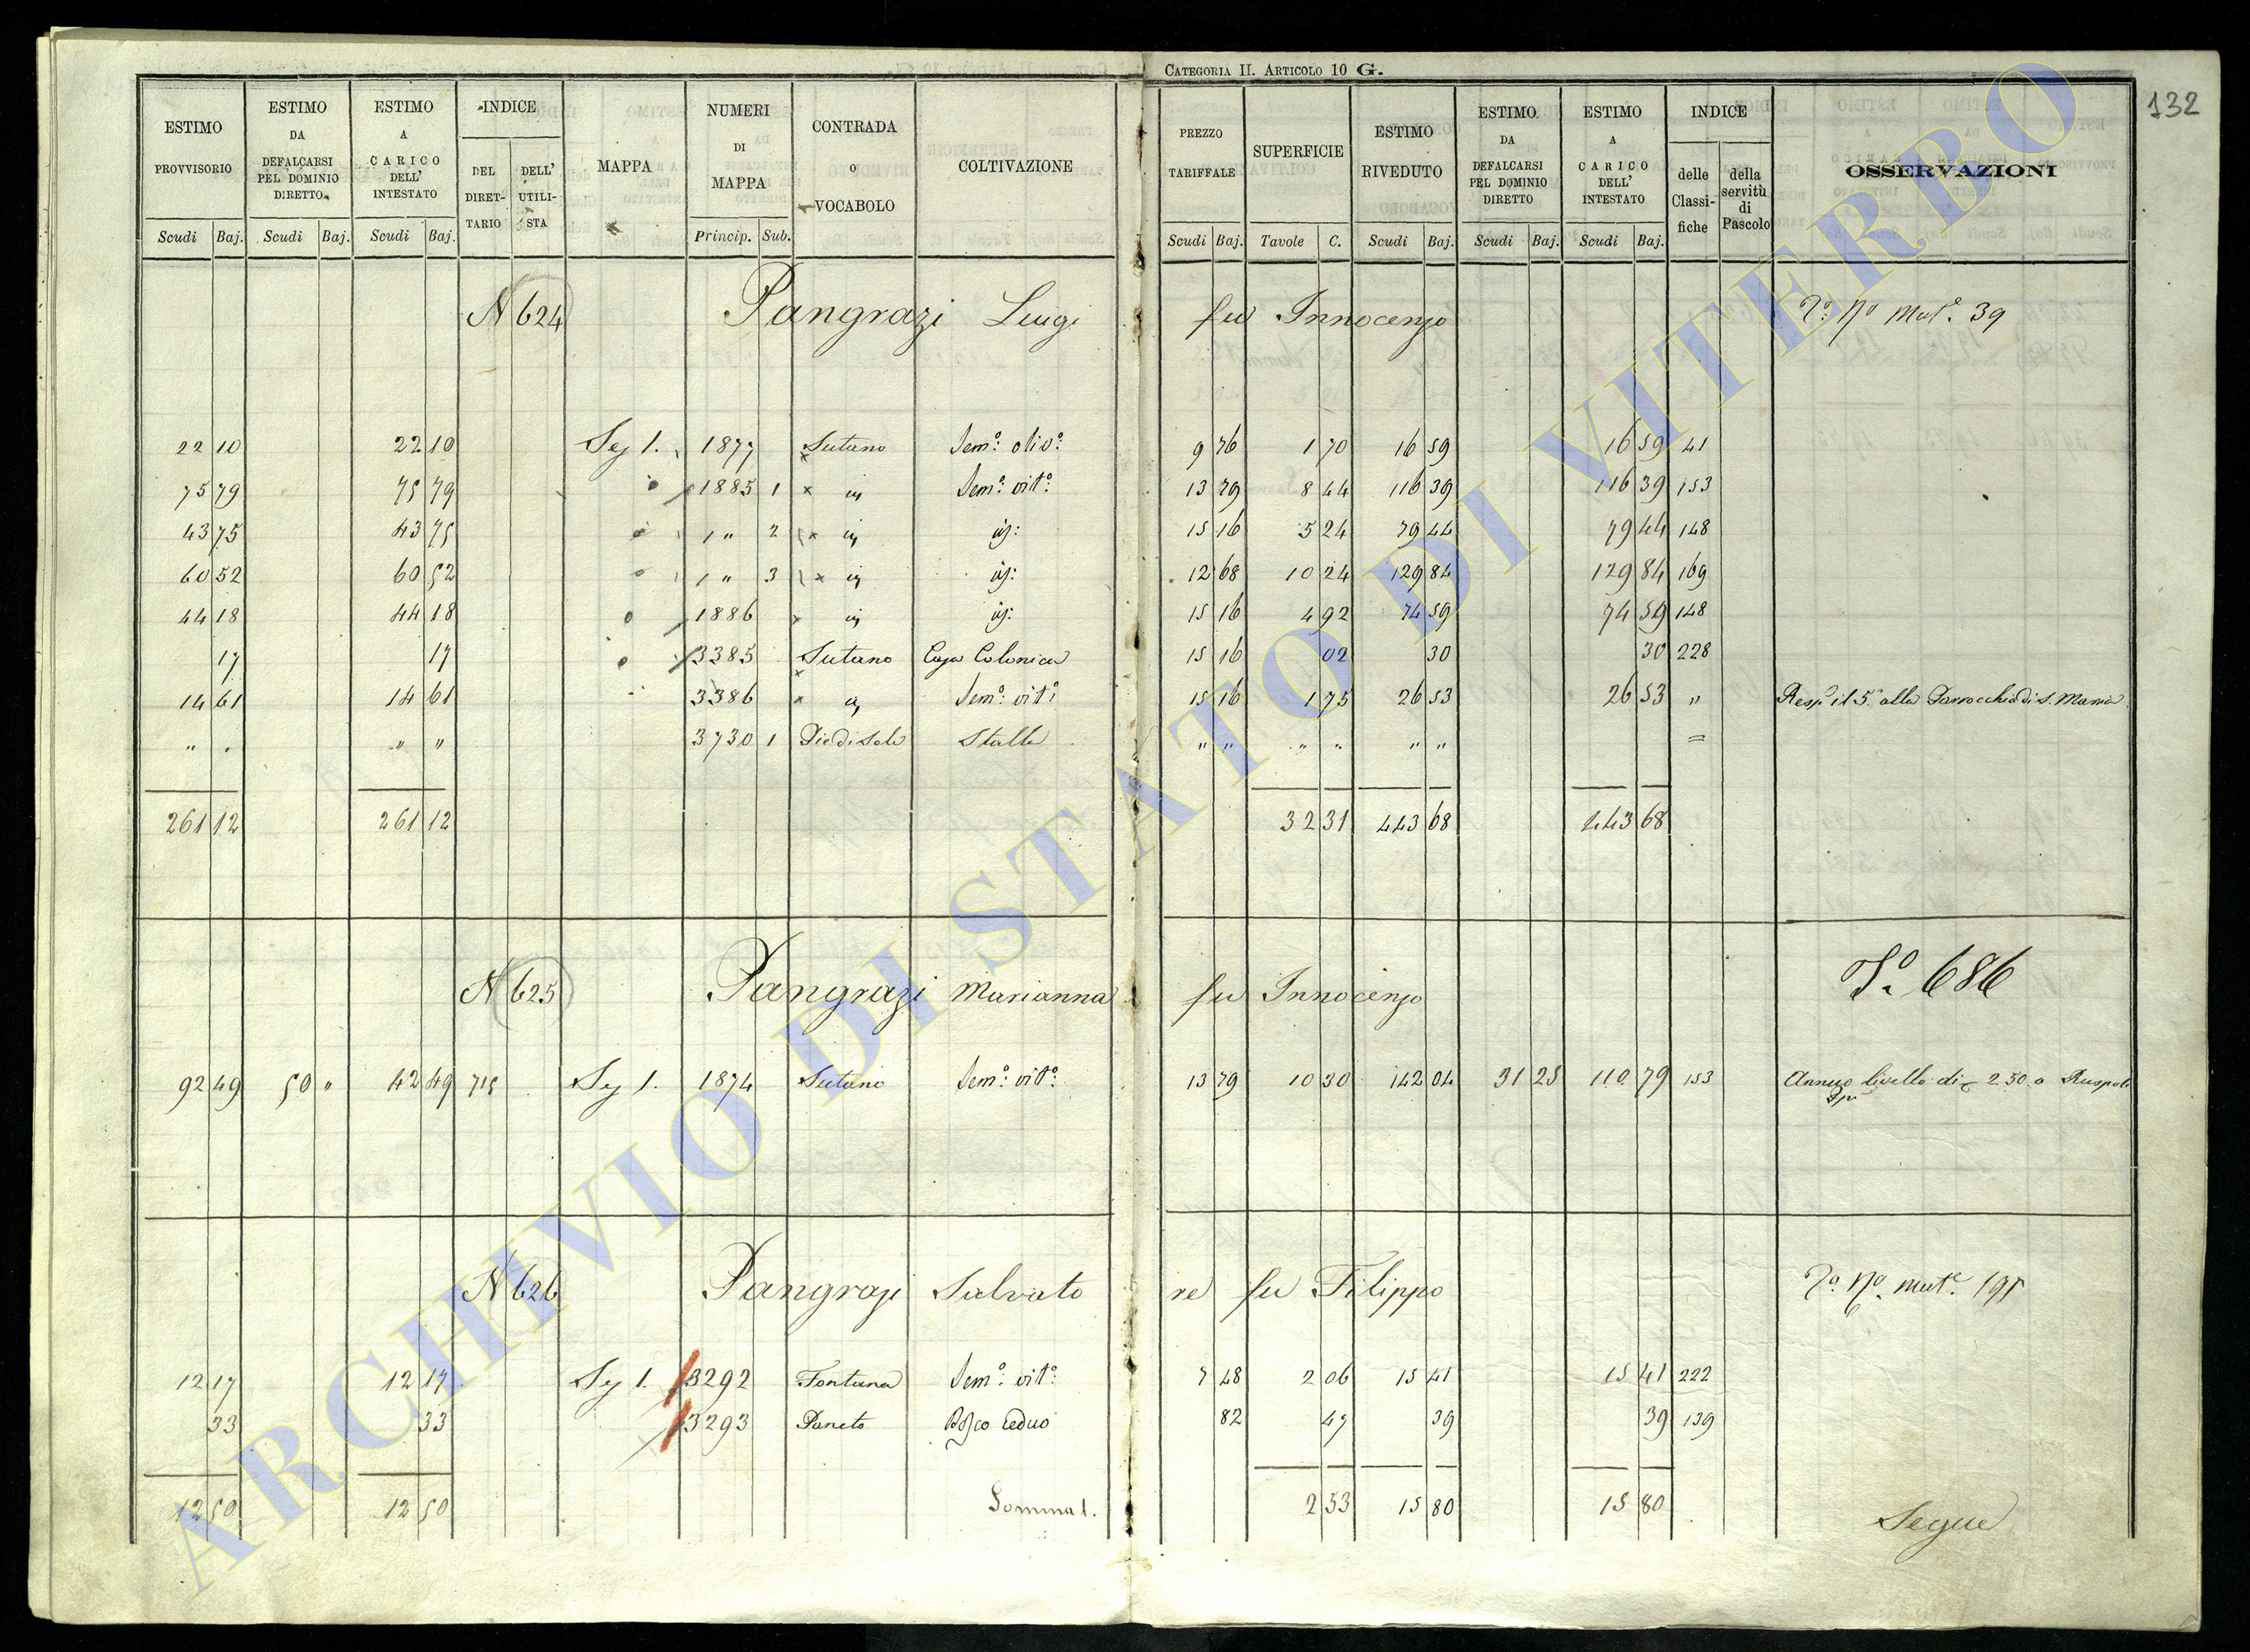 CATEGORIA II. ARTICOLO 10 G.
132
ESTIMO PROVVISORIO Scudi Baj.
ESTIMO DA DEFALCARSI PEL DOMINIO DIRETTO. Scudi Baj.
ESTIMO A CARICO DELL' INTESTATO Scudi Baj.
INDICE DEL DIRETTARIO DELL' UTILISTA
MAPPA
NUMERI DI MAPPA Princip. Sub.
CONTRADA O VOCABOLO
COLTIVAZIONE
PREZZO TARIFFALE Scudi Baj.
SUPERFICIE Tavole C.
ESTIMO RIVEDUTO Scudi Baj.
ESTIMO DA DEFALCARSI PEL DOMINIO DIRETTO Scudi Baj.
ESTIMO A CARICO DELL' INTESTATO Scudi Baj.
INDICE delle Classifiche della servitù di Pascolo
OSSERVAZIONI
N 624 Pangrazi Luigi fu Innocenzo Mut.e 39
22 10 22 10 Sez 1. 1877 Sutano Sem.o oliv.o 9 76 1 70 16 59 16 59 41
75 79 75 79 1885 1 Sem.o vit.o 13 79 8 44 116 39 116 39 153
43 75 43 75 " 2 15 16 5 24 79 44 79 44 148
60 52 60 52 " 3 12 68 10 24 129 84 129 84 169
44 18 44 18 1886 15 16 4 92 74 59 74 59 148
17 17 3385 Sutano Casa Colonica 15 16 02 30 30 228
14 61 14 61 3386 Sem.o vit.o 15 16 1 75 26 53 26 53 " Resp. il 5.o alla Parrocchia di S. Maria
" . " " 3730 1 Piedisole Stalla " " " " " " =
261 12 261 12 32 31 443 68 443 68
N 625 Pangrazi Marianna fu Innocenzo 686
92 49 50 " 42 49 715 Sez 1. 1874 Sutano Sem.o vit.o 13 79 10 30 142 04 31 25 110 79 153 Annuo livello di 2.50 a Ruspoli
N 626 Pangrazi Salvatore fu Filippo Mut.e 195
12 17 12 17 Sez 1. 3292 Fontana Sem.o vit.o 7 48 2 06 15 41 15 41 222
33 33 3293 Paneto Bosco ceduo 82 47 39 39 139
12 50 12 50 Somma 1. 2 53 15 80 15 80
Segue
ARCHIVIO DI STATO DI VITERBO